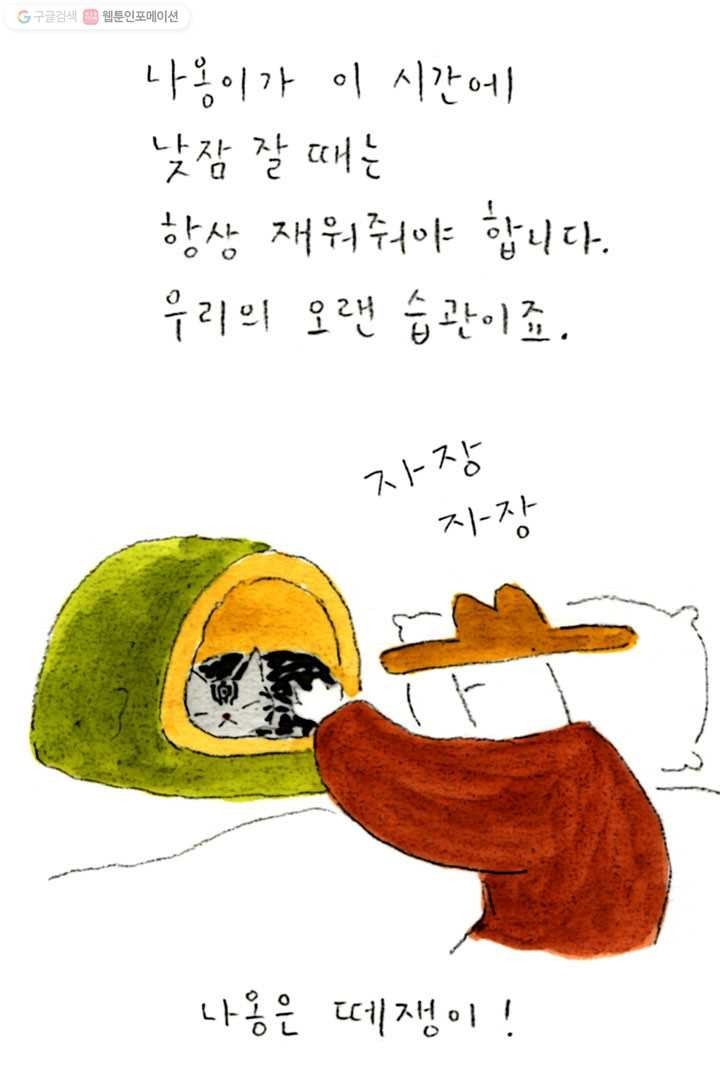 구글검색 웹툰인포메이션
나옹이가 이 시간에
낮잠 잘 때는
항상 재워줘야 합니다.
우리의 오랜 습관이죠.
자장
자장
나옹은 떼쟁이!